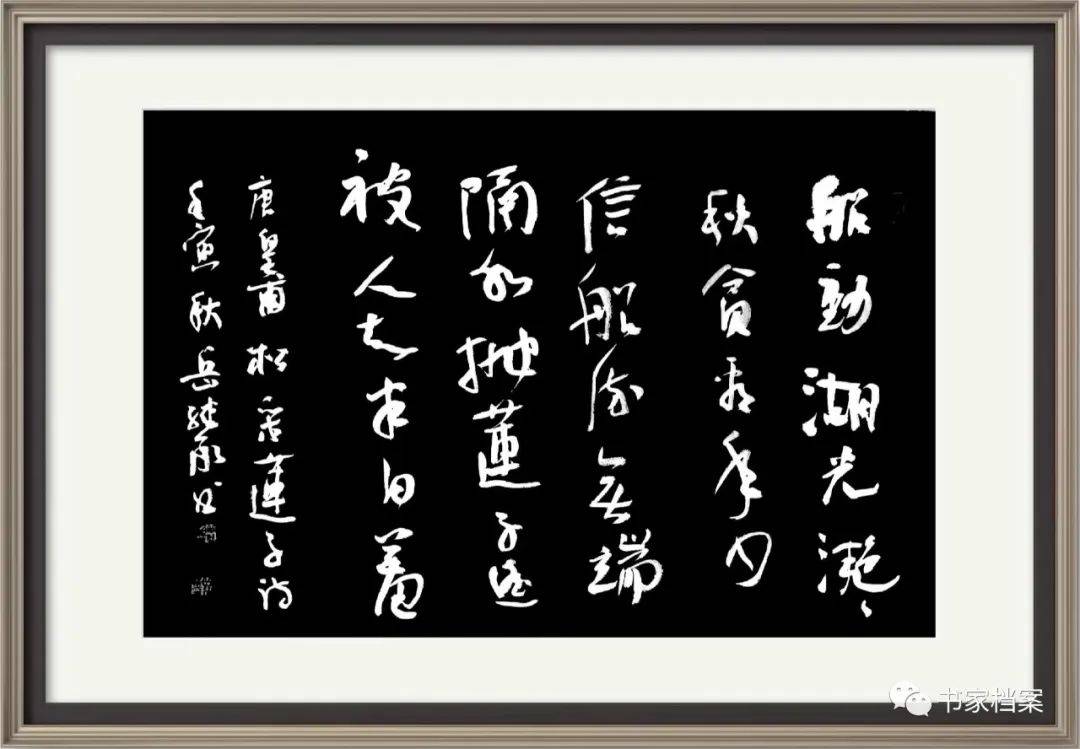 船動湖光灩〻
秋貪看年少
信船流無端
隔水抛蓮子遥
被人知半日羞
唐皇甫松采蓮子诗
壬寅秋岳继承书
书家档案